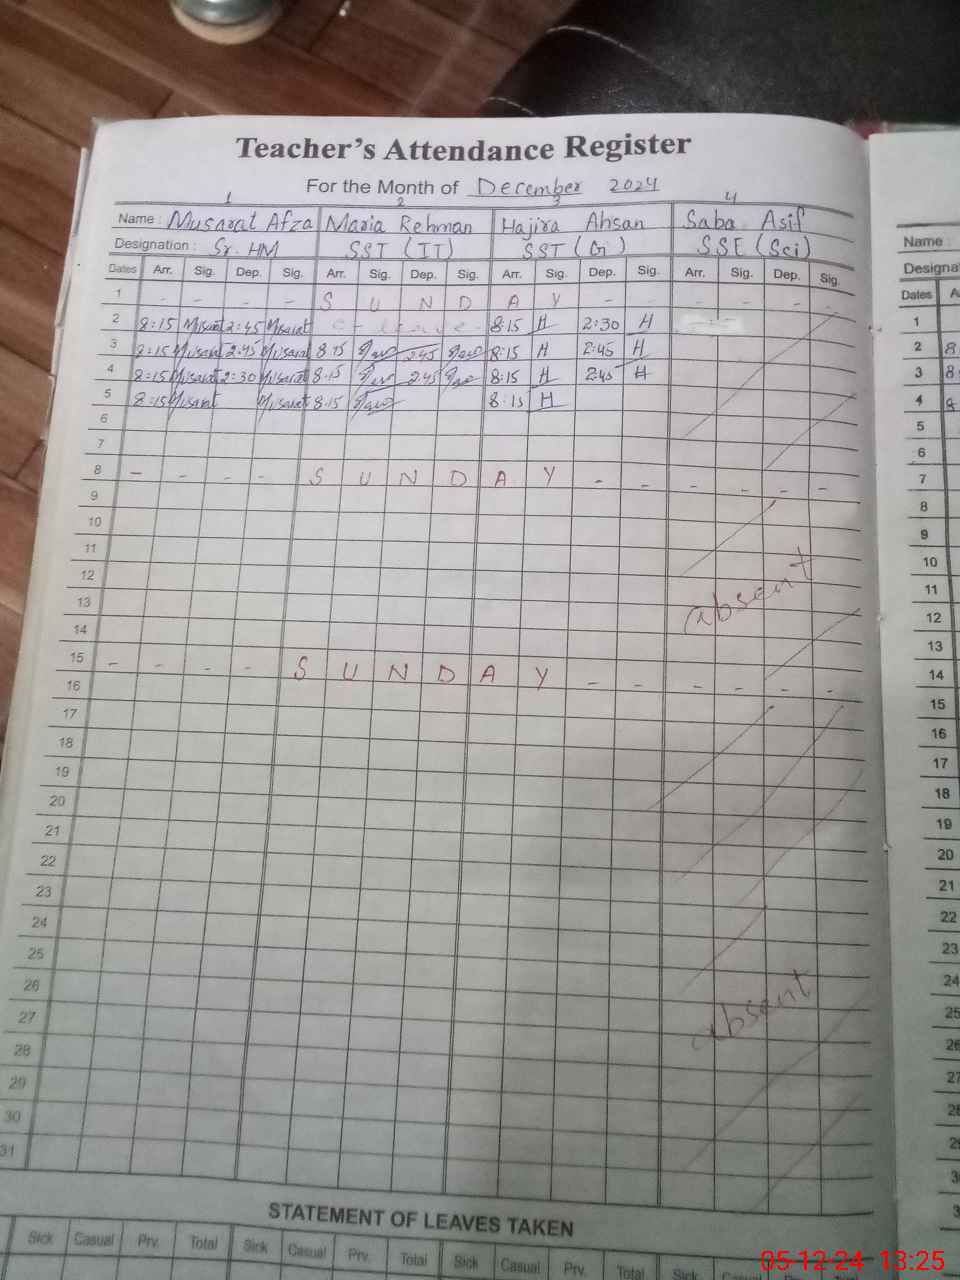 Teacher's Attendance Register
For the Month of December 2024
1 2 3 4
Name : Musarat Afza Maria Rehman Hajira Ahsan Saba Asif
Designation : Sr. HM SST (IT) SST (G) SSE (Sci)
Dates Arr. Sig. Dep. Sig. Arr. Sig. Dep. Sig. Arr. Sig. Dep. Sig. Arr. Sig. Dep. Sig.
1 - - - - S U N D A Y - - - - - -
2 8:15 Musarat 2:45 Musarat leave 8:15 H 2:30 H
3 8:15 Musarat 2:45 Musarat 8.15 2.45 8:15 H 2:45 H
4 8:15 Musarat 2:30 Musarat 8.15 2.45 8:15 H 2:45 H
5 8:15 Musarat Musarat 8.15 8:15 H
6
7
8 - - - - S U N D A Y - - - - -
9
10
11
12
absent
13
14
15 - - - - S U N D A Y - - - - - -
16
17
18
19
20
21
22
23
24
25
26
absent
27
28
29
30
31
STATEMENT OF LEAVES TAKEN
Sick Casual Prv. Total Sick Casual Prv. Total Sick Casual Prv. Total Sick Casual Prv. Total
Name :
Dates
1
2 8
3 8
4 8
5
6
7
8
9
10
11
12
13
14
15
16
17
18
19
20
21
22
23
24
25
26
27
28
29
05-12-24 13:25